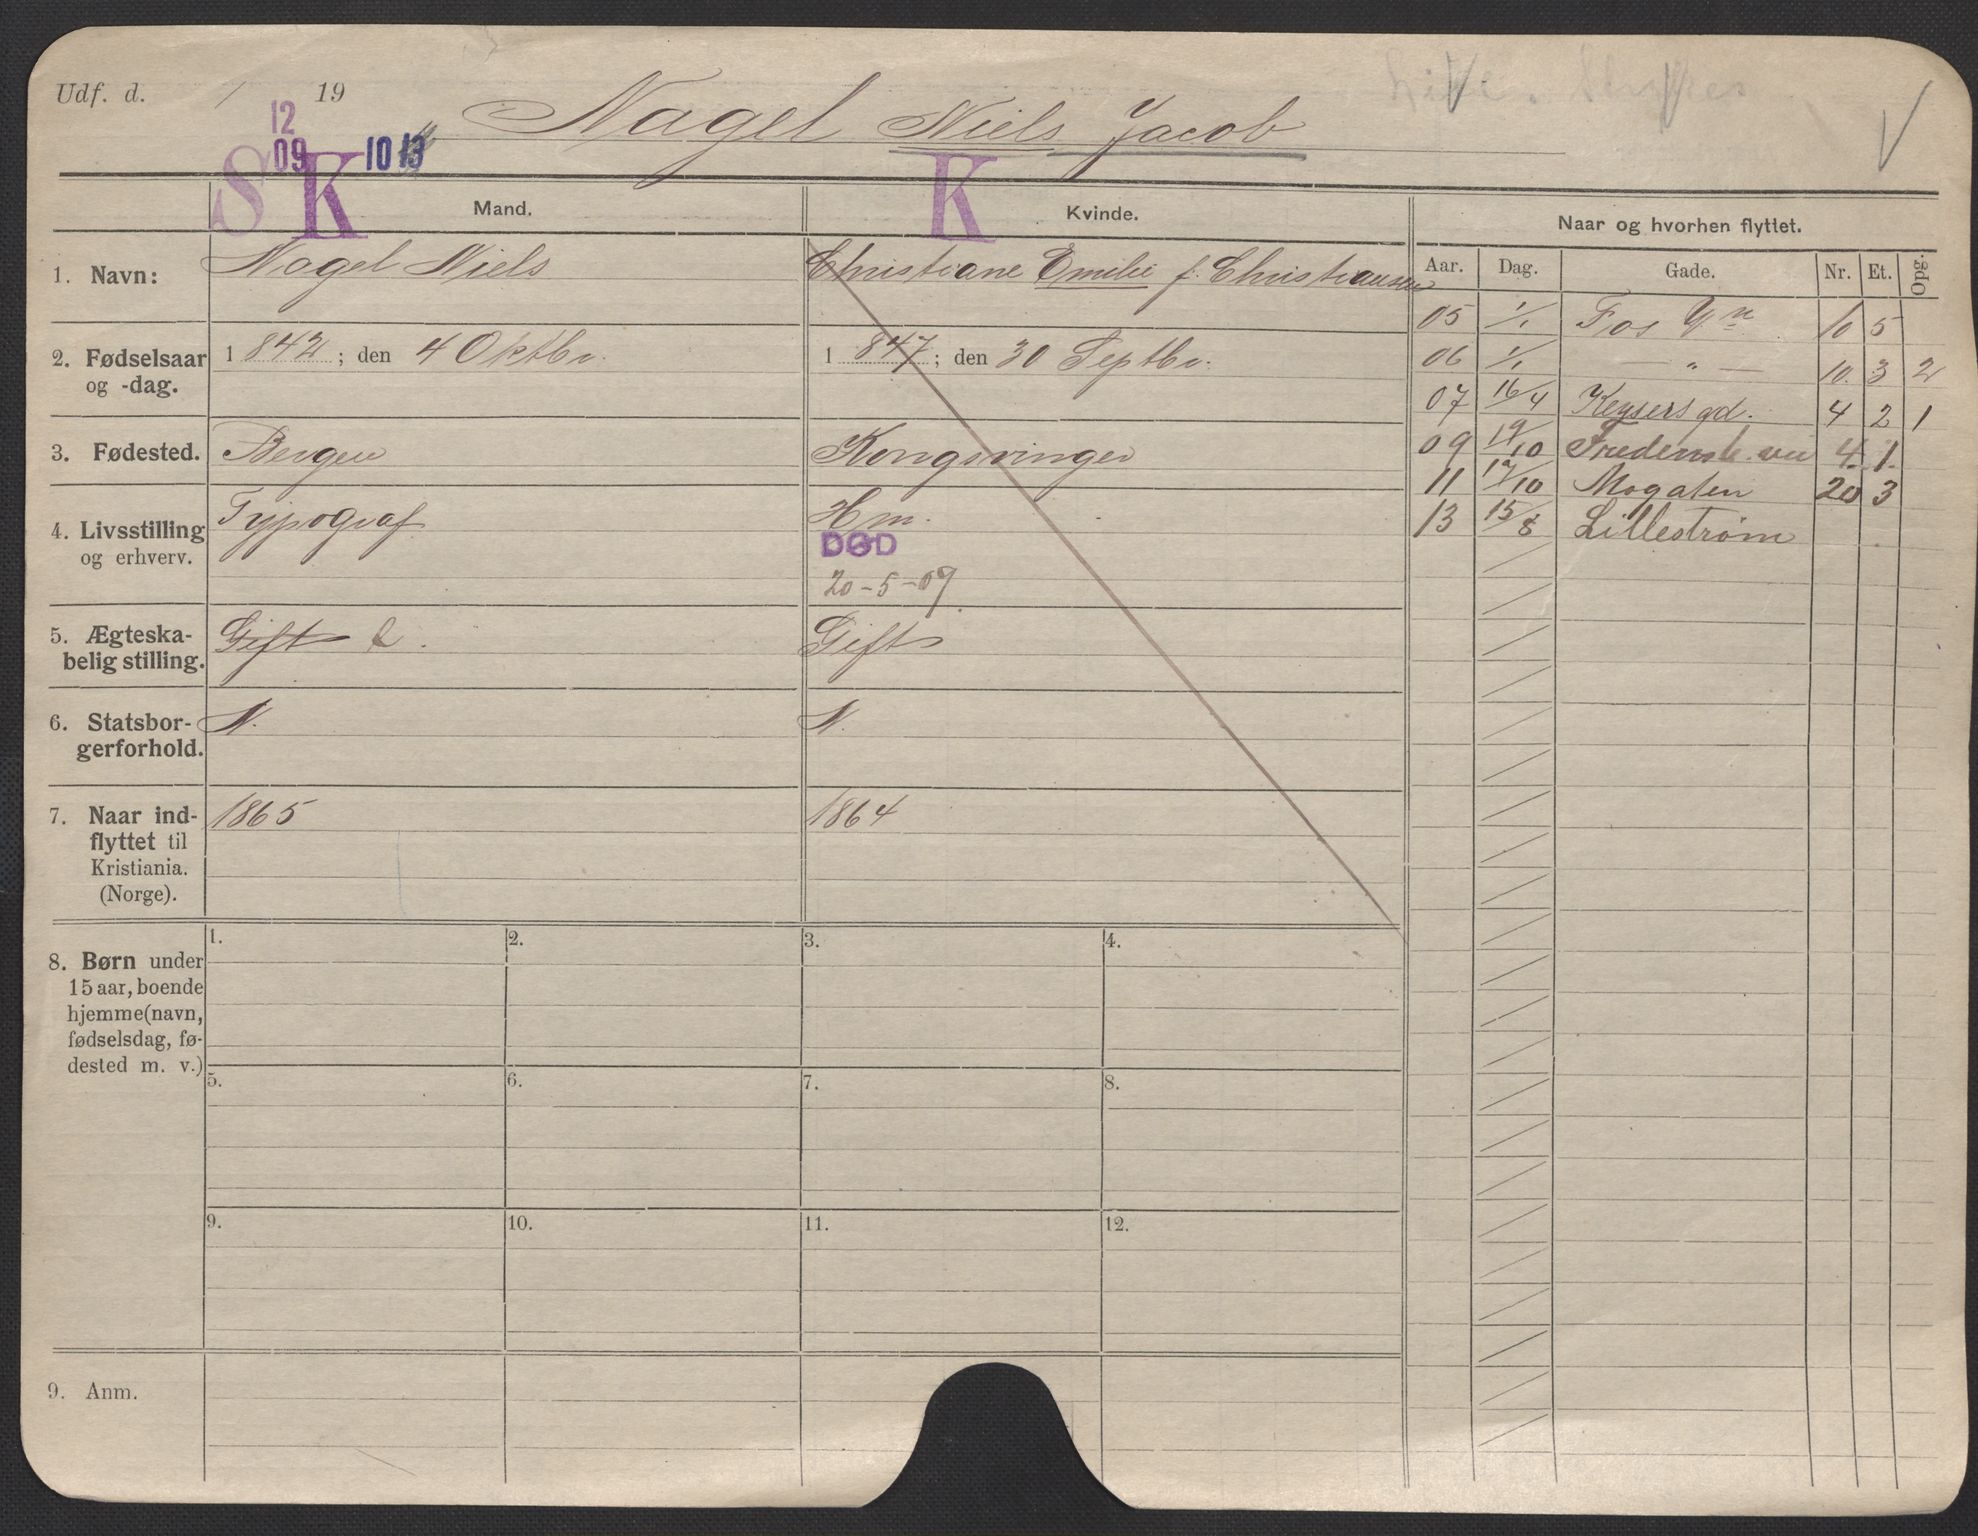 Udf. d. / 19
Nagel Niels Jacob
12
09
10 13
S K
K
Mand.
Kvinde.
Naar og hvorhen flyttet.
1. Navn:
Nagel Niels
Christiane Emilie f. Christiansen
2. Fødselsaar og -dag.
1 842; den 4 Oktbr.
1 847; den 30 Septbr.
3. Fødested.
Bergen
Kongsvinger
4. Livsstilling og erhverv.
Typograf
Hm.
DØD
20-5-09
5. Ægteska-
belig stilling.
Gift
Gift
6. Statsbor-
gerforhold.
N.
N.
7. Naar ind-
flyttet til
Kristiania.
(Norge).
1865
1864
Aar. Dag. Gade. Nr. Et. Opg.
05 1/1 Fos 10 5
06 1/1 — " — 10. 3 2
07 16/4 Keysers gd. 4 2 1
09 /10 4 1
11 /10 Mogaten 20 3
13 15/8 Lillestrøm
8. Børn under
15 aar, boende
hjemme (navn,
fødselsdag, fø-
dested m. v.)
1. 2. 3. 4.
5. 6. 7. 8.
9. 10. 11. 12.
9. Anm.